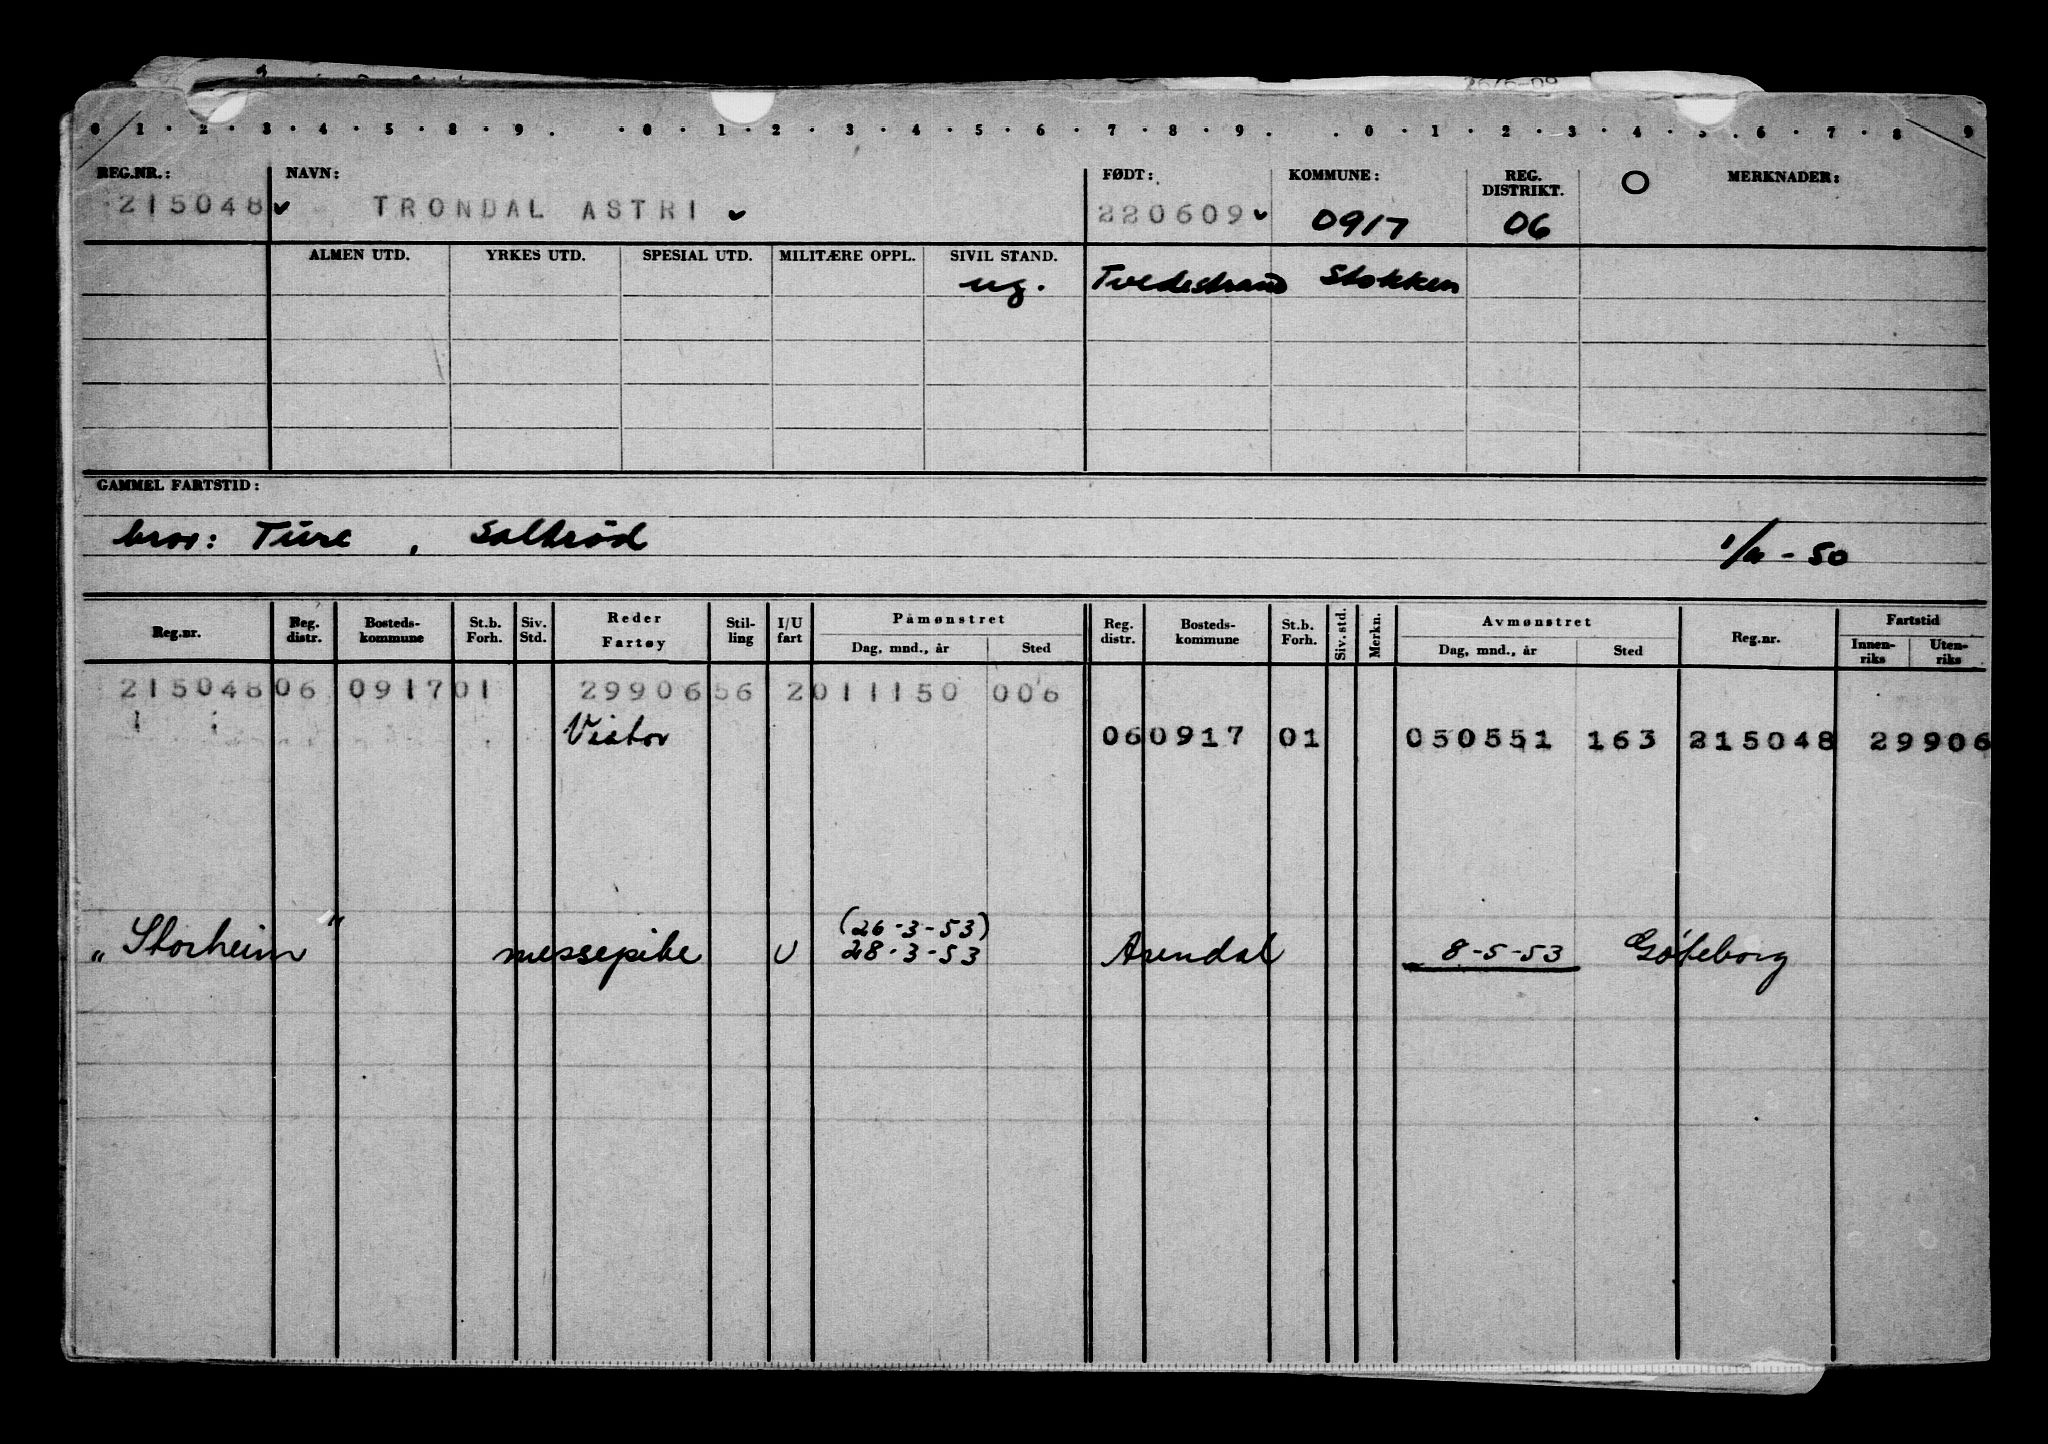 0 1 · 2 · 3 · 4 · 5 · 8 · 9 . · 0 · 1 · 2 · 3 · 4 · 5 · 6 · 7 · 8 · 9 . . 0 · 1 · 2 · 3 · 4 · 5 · 6 · 7 · 8 9
REG.NR.: NAVN: FØDT: KOMMUNE: REG. DISTRIKT. O MERKNADER:
215048 TRONDAL ASTRI 220609 0917 06
ALMEN UTD. YRKES UTD. SPESIAL UTD. MILITÆRE OPPL. SIVIL STAND.
ug. Tvedestrand Stokken
GAMMEL FARTSTID:
bror: Ture , Saltrød 1/11 - 50
Reg.nr. Reg. distr. Bosteds- kommune St.b. Forh. Siv. Std. Reder Fartøy Stil- ling I/U fart Påmønstret Reg. distr. Bosteds- kommune St.b. Forh. Siv. std. Merkn. Avmønstret Reg.nr. Fartstid
Dag, mnd., år Sted Dag, mnd., år Sted Innen- riks Uten- riks
215048 06 0917 01 29906 56 2 011150 006
Viator 06 0917 01 050551 163 215048 29906
(26-3-53)
"Storheim" messepike U 28-3-53 Arendal 8-5-53 Göteborg